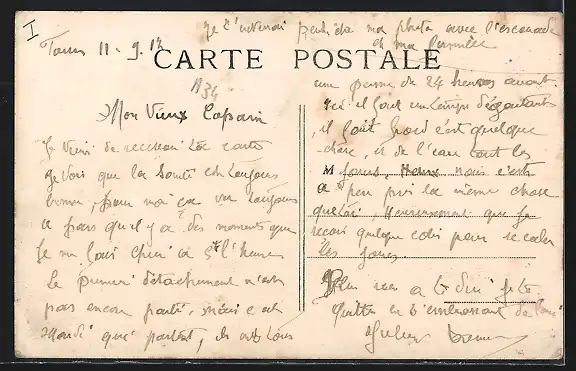 I
je t'enverrai peut être ma photo avec l'escouade
et ma Permille
Tours 11-9.12
CARTE POSTALE
Mon Vieux Copain
Je viens de recevoir ta carte
je vois que la Santé est toujours
bonne, pour moi ça va toujours
a pars qu'il y a des moments que
Je me fais chier à 5f l'heure
Le Premier détachement n'est
pas encore parti, mais c'est
Mardi qui partent, ils ont tous
une perme de 24 heures avant.
ici il fait un temps dégoutant
il fait froid c'est quelque
chose, et de l'eau tout les
jours, nous c'est
a peu pris la même chose
que toi, Heureusement que je
recois quelque colis pour se caler
les joues
Plus rien a te dire je te
quitte en t'embrassant de loin